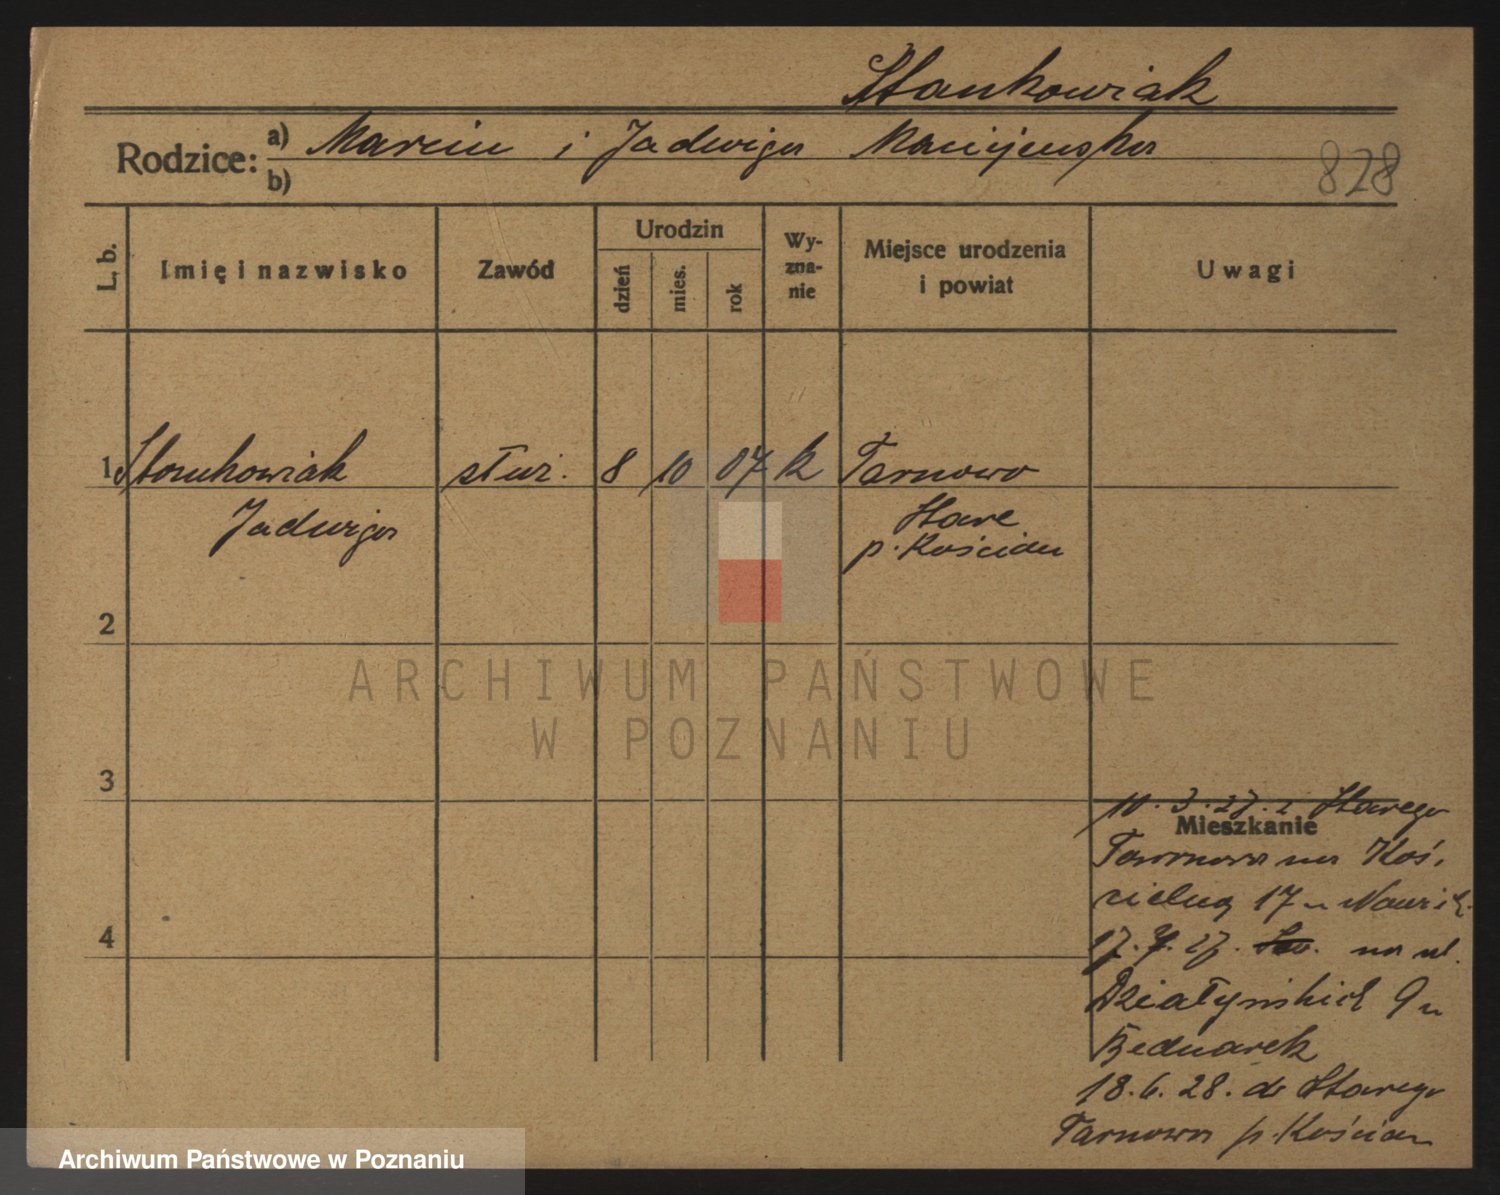 Stankowiak
Rodzice: a) Marcin i Jadwiga Maciejewska
b)
828
L. b.
Imię i nazwisko
Zawód
Urodzin
dzień
mies.
rok
Wy-
zna-
nie
Miejsce urodzenia
i powiat
Uwagi
1 Stankowiak służ. 8 10 07 k Tarnowo
Jadwiga Stare
p. Kościan
2
3
4
10.3.27. z Starego
Mieszkanie
Tarnowa na Koś.
cielną 17 u
17.7.27. na ul.
Działyńskich 9 u
Bednarek
18.6.28. do Starego
Tarnowa p. Kościan
ARCHIWUM PAŃSTWOWE
W POZNANIU
Archiwum Państwowe w Poznaniu